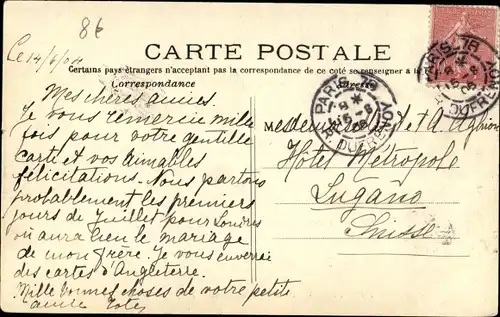 8 €
Ce 14/6/04
CARTE POSTALE
Certains pays étrangers n'acceptant pas la correspondance de ce côté se renseigner à la
Correspondance
Adresse
PARIS 78
R. DUFRENOY
PARIS 78
R. DUFRENOY
Mes chères amies.
Je vous remercie mille
fois pour votre gentille
carte et vos aimables
félicitations. Nous partons
probablement les premiers
jours de Juillet pour Londres
où aura lieu le mariage
de mon frère. Je vous enverrai
des cartes d'Angleterre.
Mille bonnes choses de votre petite
amie
Mesdemoiselles et A.
Hôtel Métropole
Lugano
Suisse